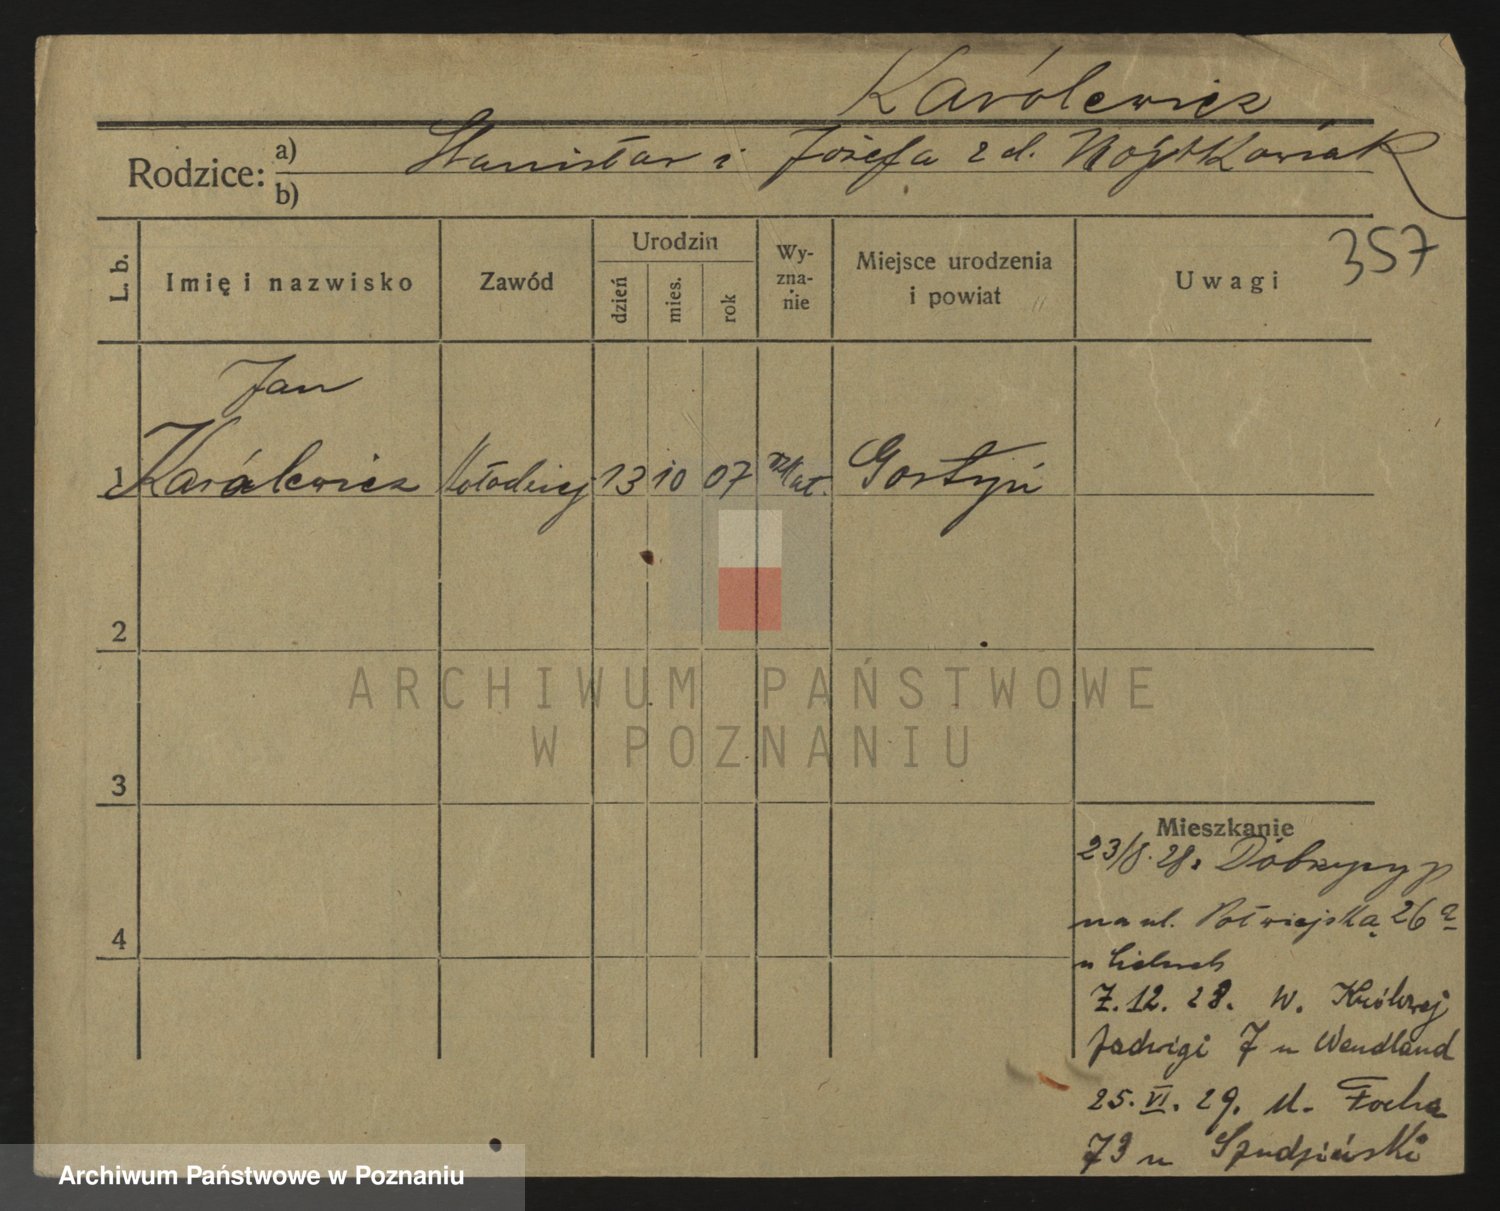 Karólewicz
Rodzice: a) Stanisław i Józefa z d. Wojtkowiak
b)
357
L. b.
Imię i nazwisko
Zawód
Urodzin
dzień
mies.
rok
Wy-
zna-
nie
Miejsce urodzenia
i powiat
Uwagi
Jan
1 Karólewicz kołodziej 13 10 07 rzkat. Gostyń
2
3
4
Mieszkanie
23/8. 28.
na ul. Półwiejską 26a
u
7. 12. 28. W. Królowej
Jadwigi 7 u Wendland
25. VI. 29. ul. Focha
73 u Szudziński
ARCHIWUM PAŃSTWOWE
W POZNANIU
Archiwum Państwowe w Poznaniu